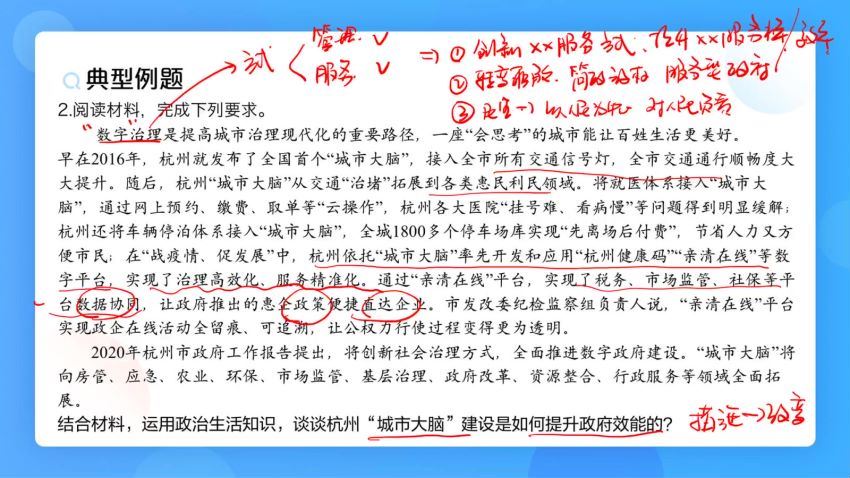 管理 √
服务 √
试
⇒ ① 创新××服务方式、提升××服务
② 转变职能. 简政放权 服务型政府
③ 以人民为中心 对人民负责
典型例题
2.阅读材料，完成下列要求。
“数字治理”是提高城市治理现代化的重要路径，一座“会思考”的城市能让百姓生活更美好。
早在2016年，杭州就发布了全国首个“城市大脑”，接入全市所有交通信号灯，全市交通通行顺畅度大
大提升。随后，杭州“城市大脑”从交通“治堵”拓展到各类惠民利民领域。将就医体系接入“城市大
脑”，通过网上预约、缴费、取单等“云操作”，杭州各大医院“挂号难、看病慢”等问题得到明显缓解；
杭州还将车辆停泊体系接入“城市大脑”，全城1800多个停车场库实现“先离场后付费”，节省人力又方
便市民；在“战疫情、促发展”中，杭州依托“城市大脑”率先开发和应用“杭州健康码”“亲清在线”等数
字平台，实现了治理高效化、服务精准化。通过“亲清在线”平台，实现了税务、市场监管、社保等平
台数据协同，让政府推出的惠企政策便捷直达企业。市发改委纪检监察组负责人说，“亲清在线”平台
实现政企在线活动全留痕、可追溯，让公权力行使过程变得更为透明。
2020年杭州市政府工作报告提出，将创新社会治理方式，全面推进数字政府建设。“城市大脑”将
向房管、应急、农业、环保、市场监管、基层治理、政府改革、资源整合、行政服务等领域全面拓
展。
结合材料，运用政治生活知识，谈谈杭州“城市大脑”建设是如何提升政府效能的？